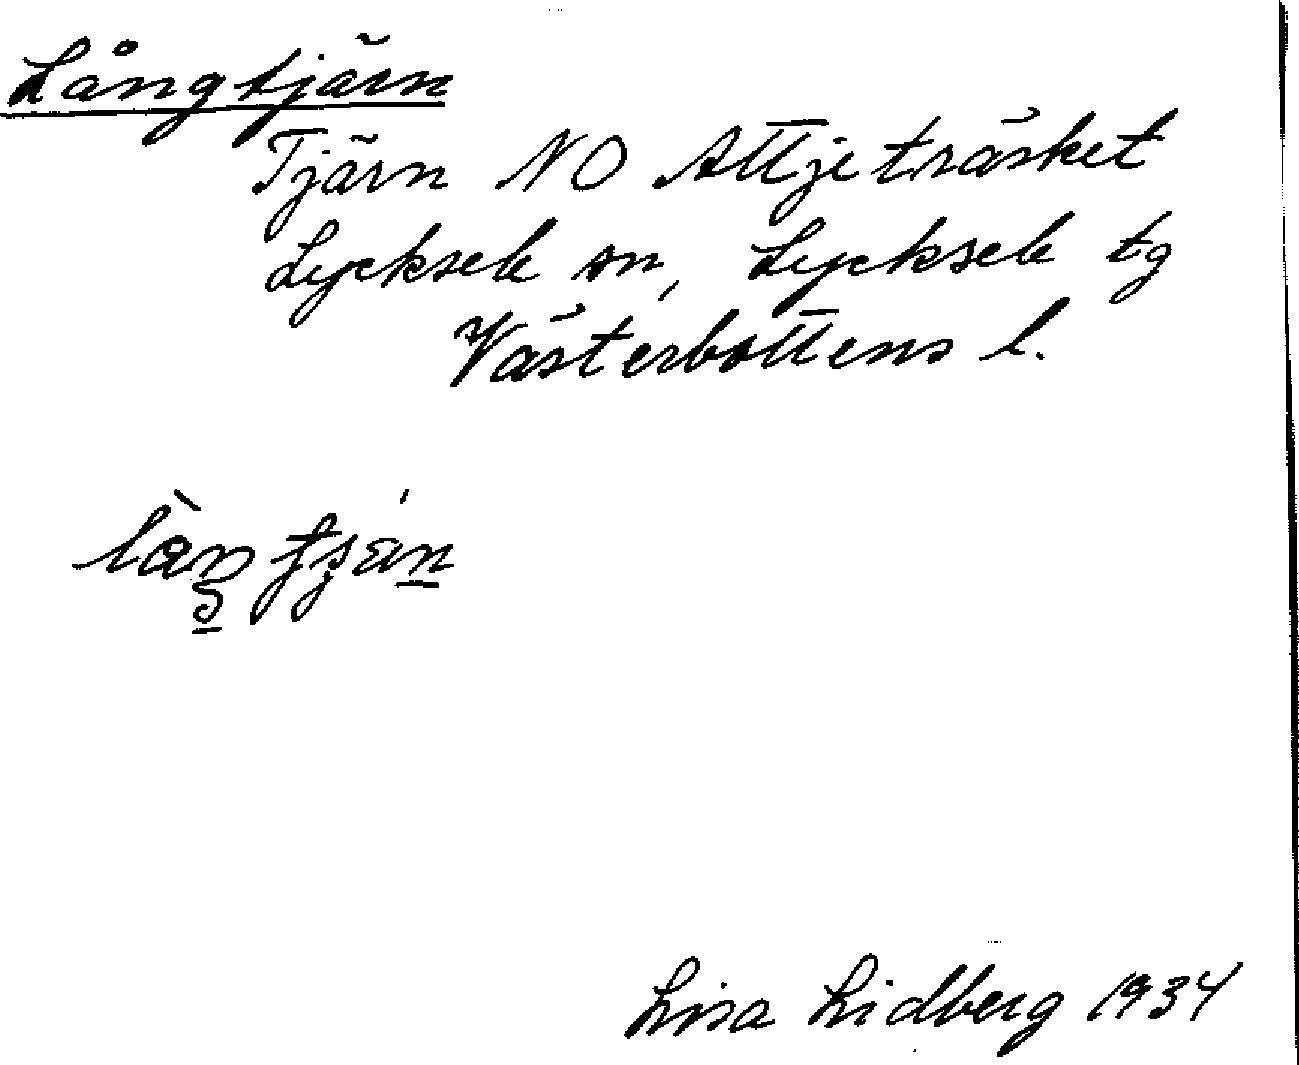 Långtjärn
Tjärn NO Attjeträsket
Lycksele sn, Lycksele tg
Västerbottens l.
Lisa Lidberg 1934